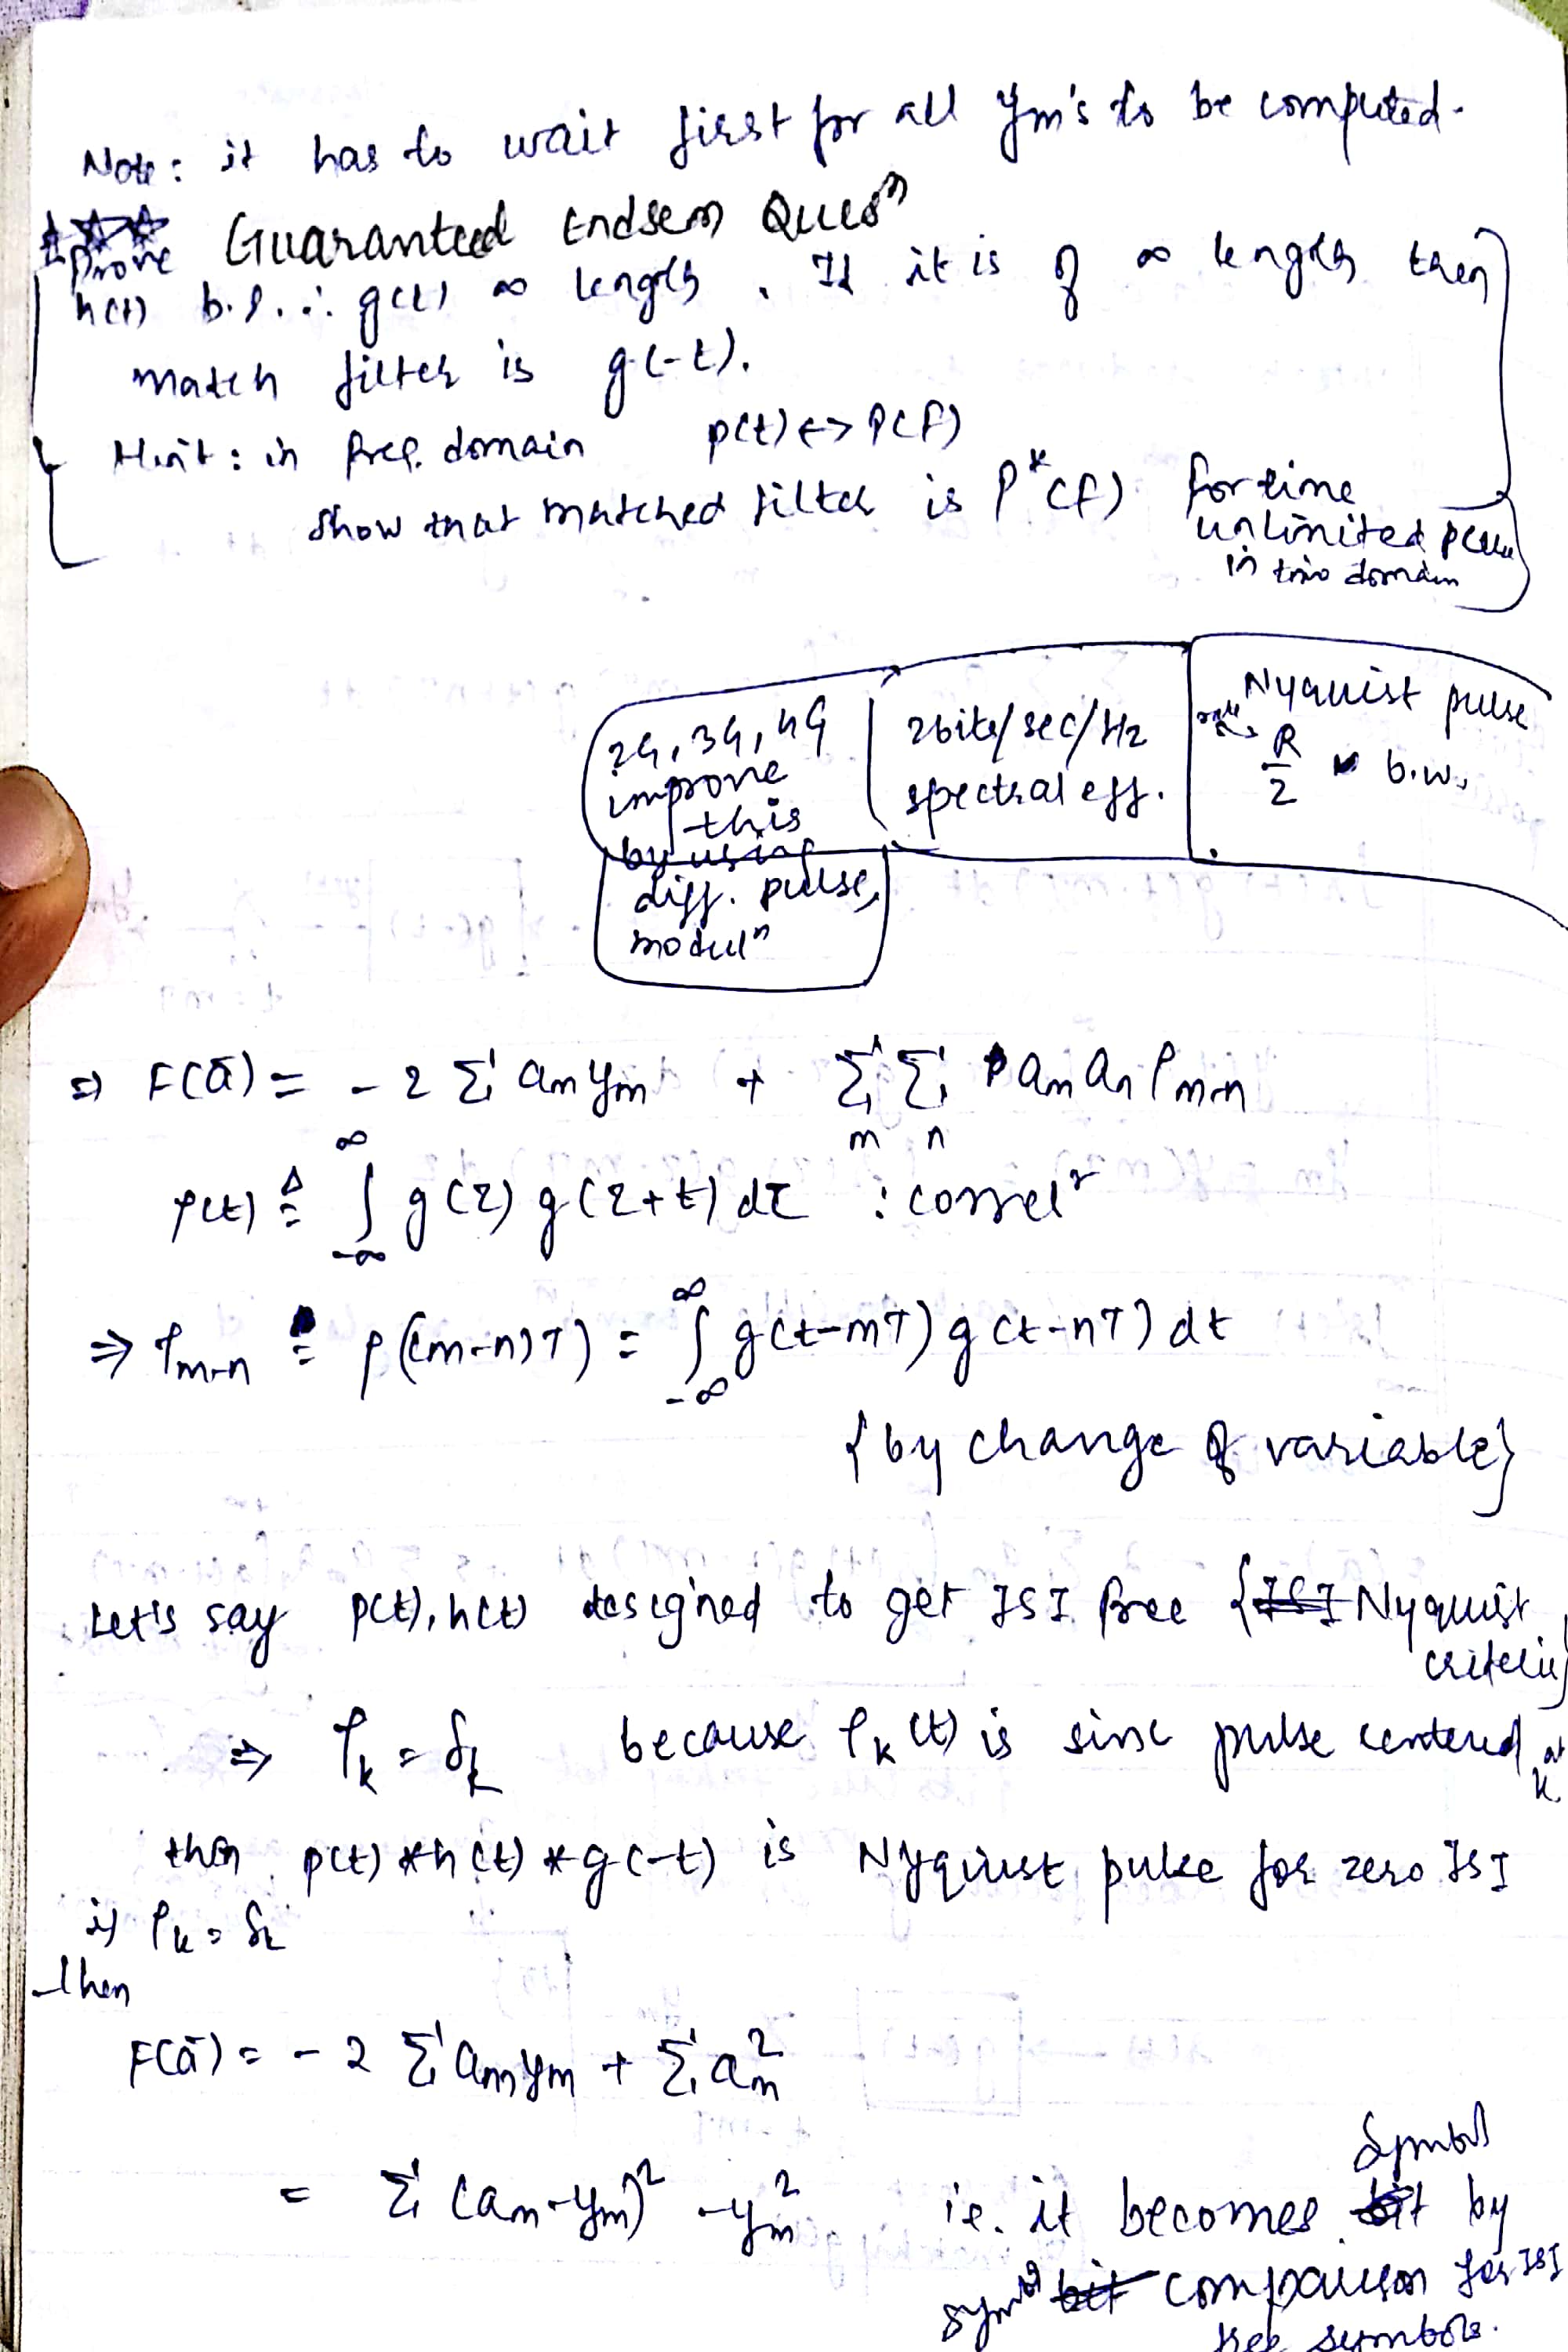 Note: it has to wait first for all ym's to be computed.
*** Guaranteed Endsem Quesⁿ
Prove
h(t) b.l. ∴ g(t) ∞ length. If it is of ∞ length then
match filter is g(-t).
Hint: in freq. domain p(t) ↔ P(f)
show that matched filter is P*(f) for time
unlimited pulse
in time domain
2G, 3G, 4G
improve
this
by using
diff. pulse,
modulⁿ
2bits/sec/Hz
spectral eff.
Nyquist pulse
R/2 b.w.
⇒ F(ā) = -2 Σ am ym + Σm Σn am an ρm-n
ρ(t) ≜ ∫-∞^∞ g(τ) g(τ+t) dτ : correlⁿ
⇒ ρm-n = ρ((m-n)T) = ∫-∞^∞ g(t-mT) g(t-nT) dt
{by change of variable}
Let's say p(t), h(t) designed to get ISI free {ISI Nyquist
criteria}
⇒ ρk = δk because ρk(t) is sinc pulse centered at
k
then p(t) * h(t) * g(-t) is Nyquist pulse for zero ISI
if ρk = δk
then
F(ā) = -2 Σ am ym + Σ am²
= Σ (am - ym)² - ym² i.e. it becomes bit symbol by
symbol bit comparison for ISI
free symbols.